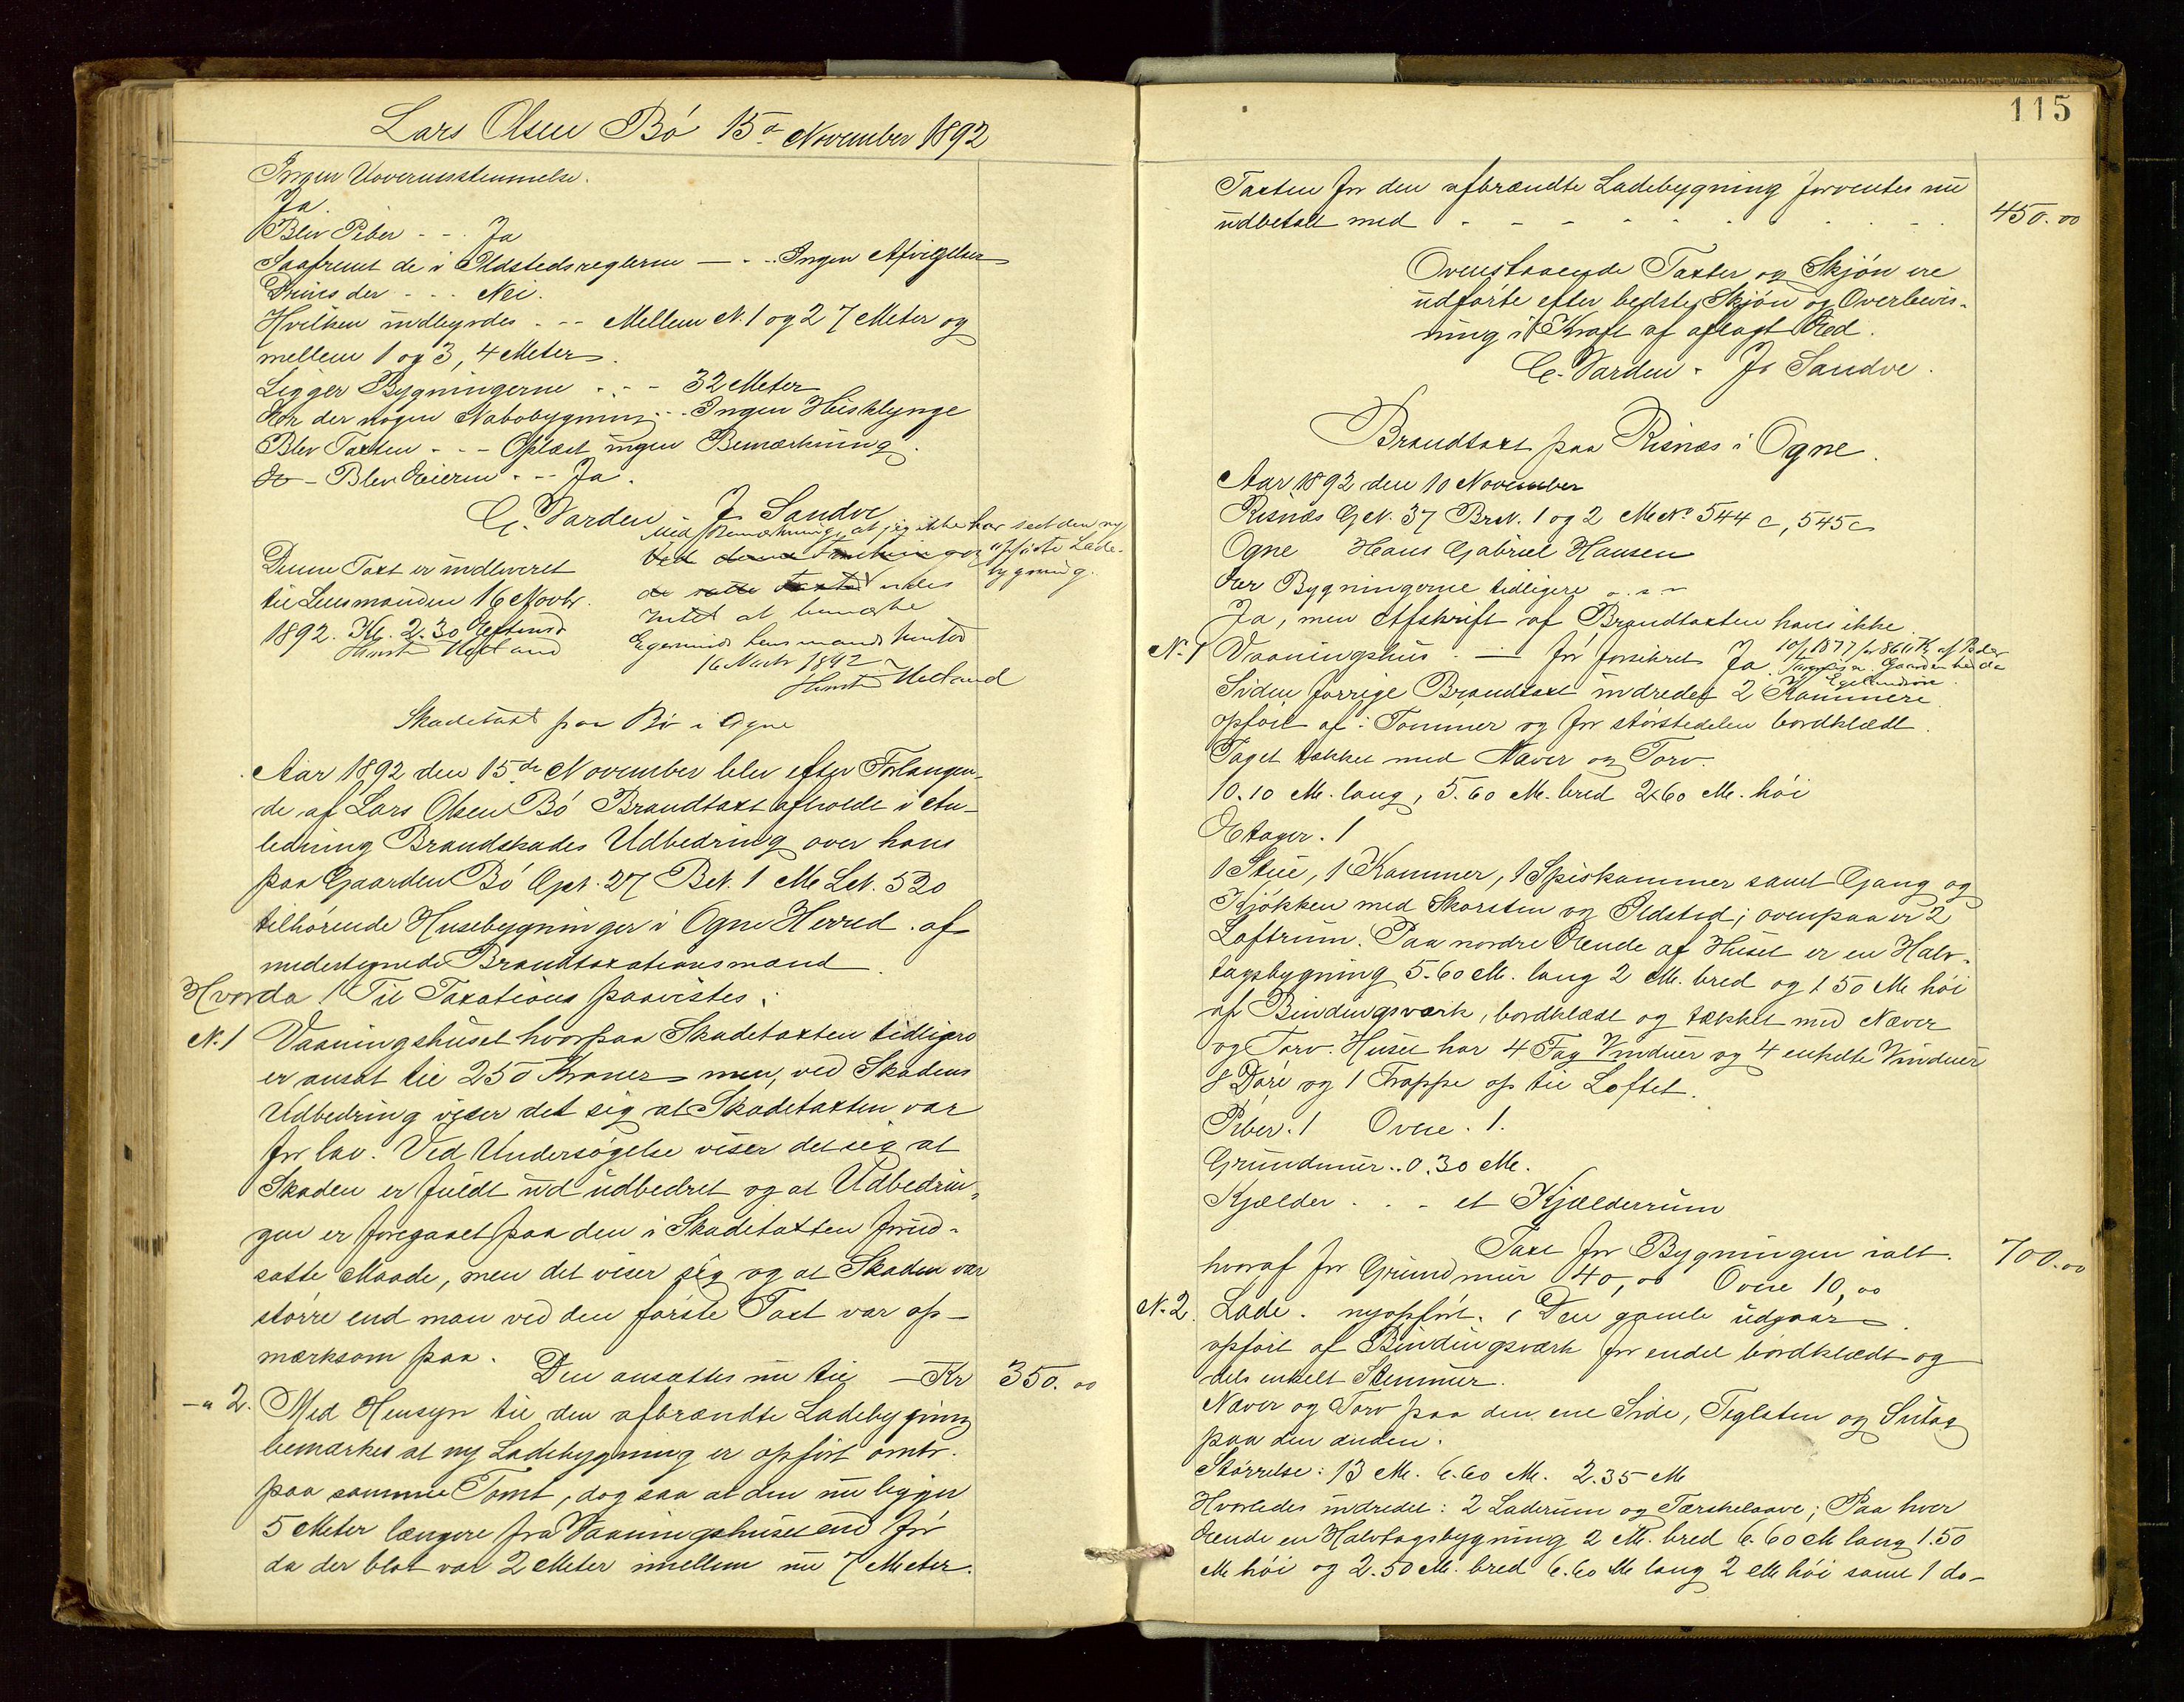 Lars Olsen Bø 15de November 1892
Ingen Uoverensstemmelse.
Ja.
Blev Piber - - - Ja
Saafremt de i Ildstedsreglerne — - - Ingen Afvigelse
Drives der - - - Nei.
Hvilken indbyrdes - - - Mellem N. 1 og 2 7 Meter og
mellem 1 og 3, 4 Meter.
Ligger Bygningerne - - - 32 Meter
Er der nogen Nabobygning - - Ingen Husklynge
Blev Taxten - - - Oplæst ingen Bemærkning.
Blev Eieren - - Ja.
C. Varden - J. Sandve
Med Bemærkning, at jeg ikke har seet den ny
opførte Lade-
bygning.
Denne Taxt er indleveret
til Lensmanden 16 Novbr.
1892. Kl. 2.30 Efterm.
Hetland
de satte Taxter vides
Intet at bemærke
Egersunds Lensmandskontor
16 Novbr 1892
Hetland
Skadetaxt paa Bø i Ogne
Aar 1892 den 15de November blev efter Forlangen-
de af Lars Olsen Bø Brandtaxt afholdt i An-
ledning Brandskades Udbedring over hans
paa Gaarden Bø Gn. 27 Bn. 1 M. L. N. 520
tilhørende Husebygninger i Ogne Herred af
undertegnede Brandtaxationsmænd.
Hvorda! Til Taxation paavistes:
N. 1 Vaaningshuset hvorpaa Skadetaxten tidligere
er ansat til 250 Kroner men, ved Skadens
Udbedring viser det sig at Skadetaxten var
for lav. Ved Undersøgelse viser det sig at
Skaden er fuldt ud udbedret og at Udbedrin-
gen er foregaaet paa den i Skadetaxten forud-
satte Maade, men det viser sig og at Skaden var
større end man ved den første Taxt var op-
mærksom paa.
Den ansættes nu til — Kr 350.00
- " 2. Med Hensyn til den afbrændte Ladebygning
bemærkes at ny Ladebygning er opført omtr.
paa samme Tomt, dog saa at den nu ligger
5 Meter længere fra Vaaningshuset end før
da der blot var 2 Meter imellem nu 7 Meter.
115
Taxten for den afbrændte Ladebygning forventes nu
udbetalt med - - - - - - - 450.00
Ovenstaaende Taxter og Skjøn ere
udførte efter bedste Skjøn og Overbevis-
ning i Kraft af aflagt Eed.
C. Varden. J. Sandve.
Brandtaxt paa Risnæs i Ogne.
Aar 1892 den 10 November
Risnæs G. N. 37 Br. N. 1 og 2 M. No 544 c, 545 c
Ogne Hans Gabriel Hansen
Er Bygningerne tidligere - - -
Ja, men Afskrift af Brandtaxten haves ikke
No 1 Vaaningshus — før forsikret Ja.
Siden forrige Brandtaxt indredet 2 Kammere
opført af: Tømmer og for størstedelen bordklædt.
Taget tækket med Næver og Torv.
10.10 M. lang, 5.60 M. bred 2.60 M. høi
Etager. 1
1 Stue, 1 Kammer, 1 Spiskammer samt Gang og
Kjøkken med Skorsten og Ildsted; ovenpaa er 2
Loftrum. Paa nordre Ende af Huset er en Halv-
tagsbygning 5.60 M. lang 2 M. bred og 1.50 M. høi
af Bindingsværk, bordklædt og tækket med Næver
og Torv. Huset har 4 Fag Vinduer og 4 enkelte Vinduer
8 Døre og 1 Trappe op til Loftet.
Piber. 1 Ovne. 1.
Grundmur. . 0.30 M.
Kjælder - . - et Kjælderrum
Taxt for Bygningen ialt. 700.00
hvoraf for Grundmur 40,00 Ovne 10,00
N. 2. Lade. nyopført. (Den gamle udgaar.
opført af Bindingsværk for endel bordklædt og
dels enkelt Stenmur.
Næver og Torv paa den ene Side, Teglsten og Sutag
paa den anden.
Størrelse: 13 M. 6.60 M. 2.35 M
Hvorledes indredet: 2 Laderum og Tærskelaave; Paa hver
Ende en Halvtagsbygning 2 M. bred 6.60 M lang 1.50
M høi og 2.50 M. bred 6.60 M lang 2 M høi samt 1 do-